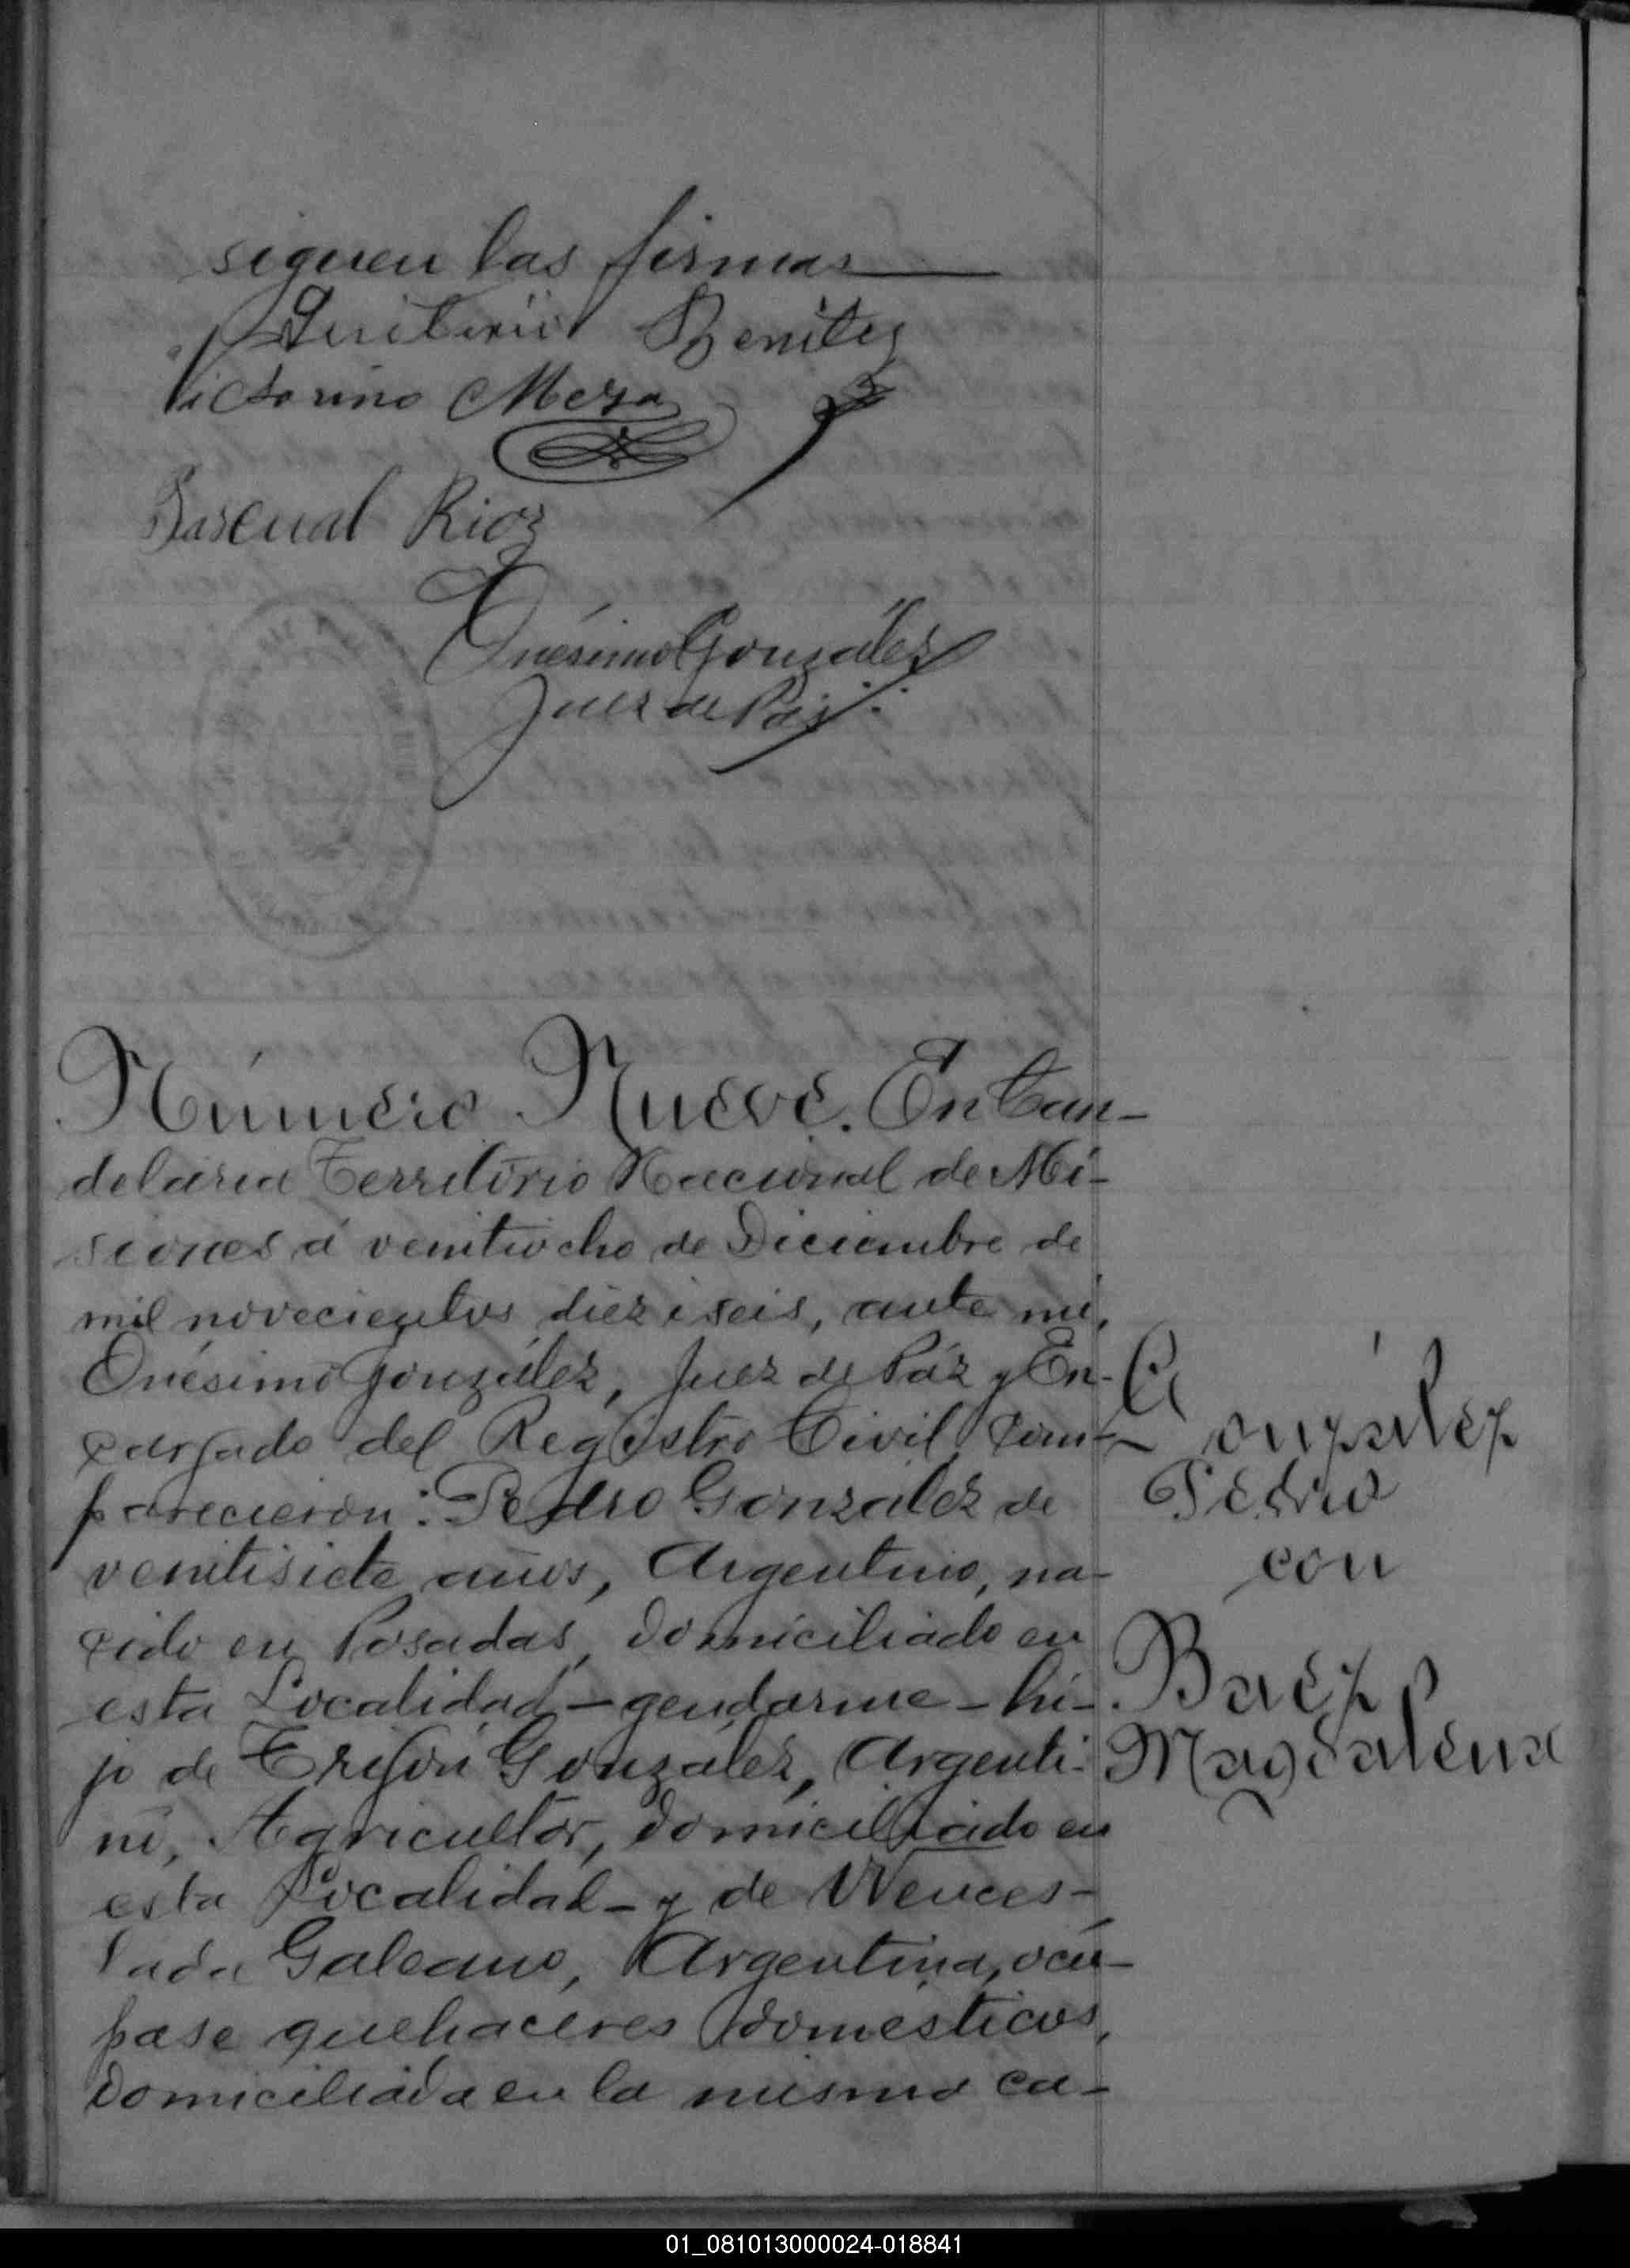 siguen las firmas
Quiterio Benitez
Victorino Meza
Pascual Rios
Onésimo González
Juez de Páz
Número Nueve. En Can-
delaria Territorio Nacional de Mi-
siones á venitiocho de Diciembre de
mil novecientos dieziseis, ante mi,
Onésimo González, Juez de Páz y En-
cargado del Registro Civil, com-
parecieron: Pedro González de
venitisiete años, Argentino, na-
cido en Posadas, domiciliado en
esta Localidad - gendarme - hi-
jo de Trifón González, Argenti-
no, Agricultor, domiciliado en
esta Localidad - y de Wences-
lada Galeano, Argentina, ocú-
pase quehaceres domésticos,
domiciliada en la misma ca-
González
Pedro
con
Baez
Magdalena
01_081013000024-018841